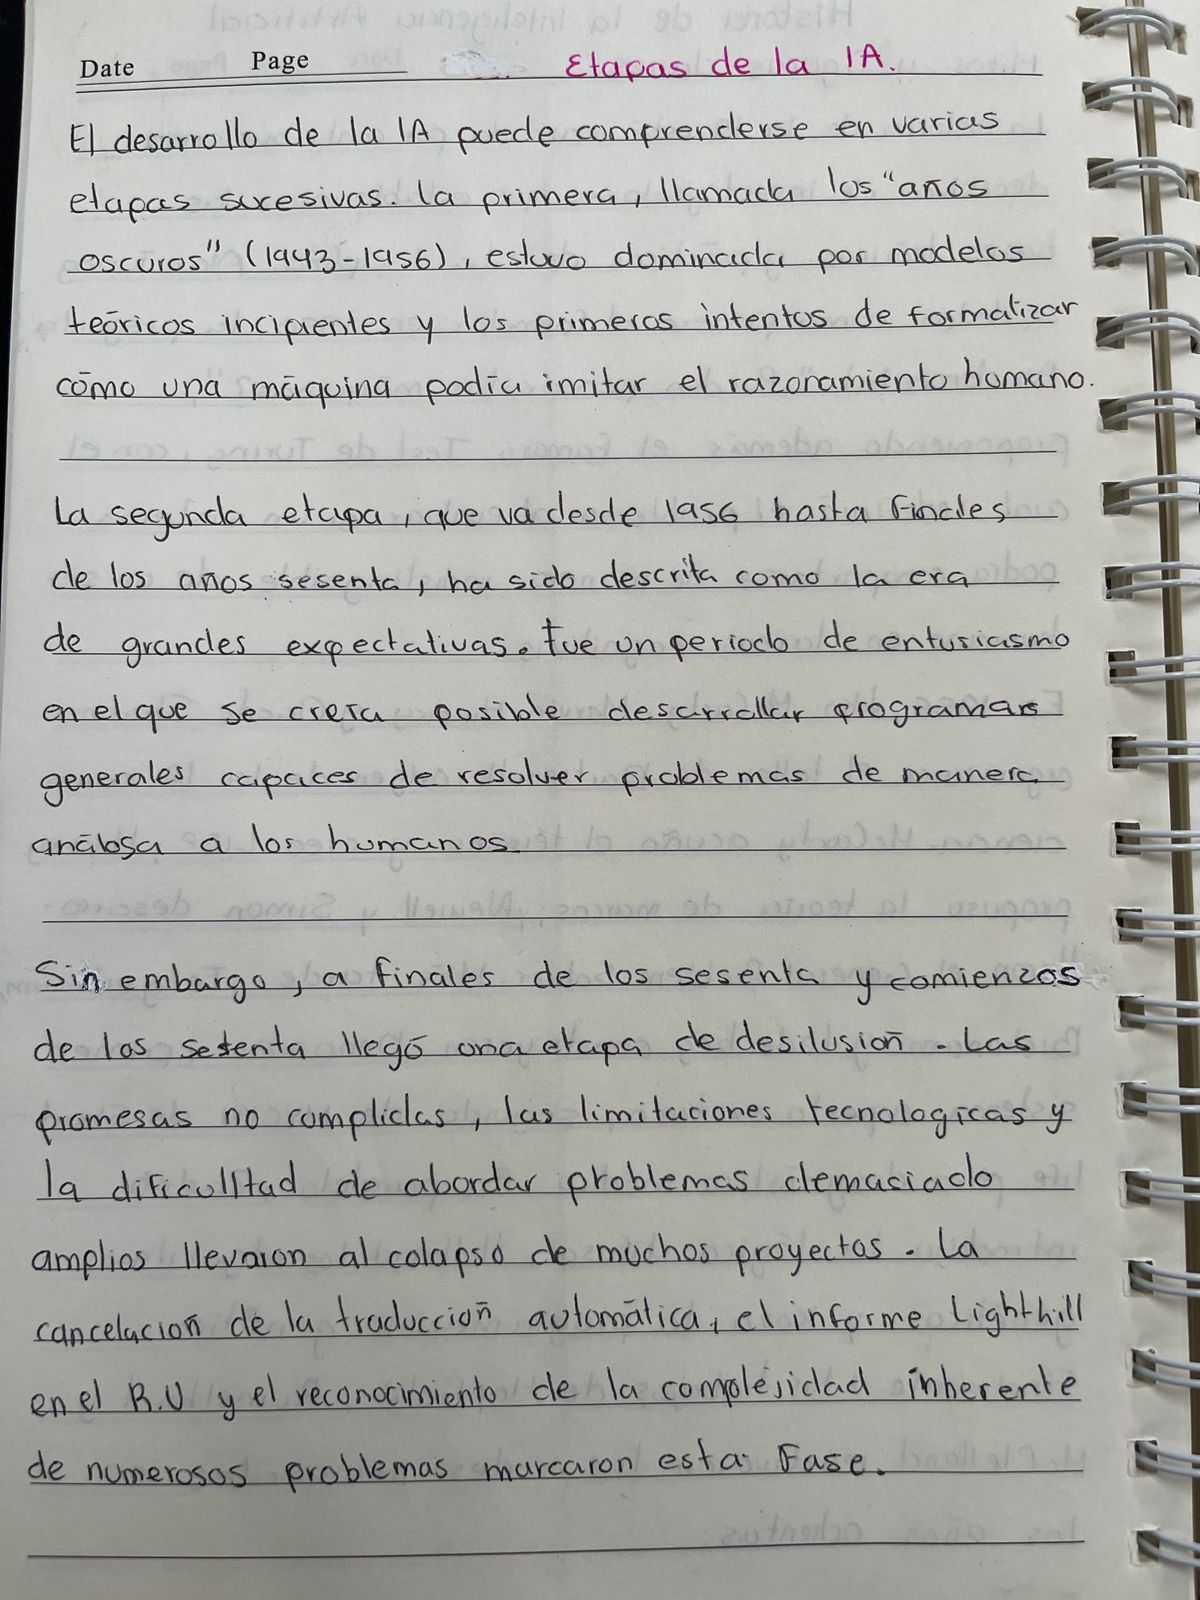 Date Page Etapas de la IA.
El desarrollo de la IA puede comprenderse en varias
etapas sucesivas. La primera, llamada los "años
oscuros" (1943-1956), estuvo dominada por modelos
teóricos incipientes y los primeros intentos de formalizar
cómo una máquina podía imitar el razonamiento humano.
La segunda etapa, que va desde 1956 hasta finales
de los años sesenta, ha sido descrita como la era
de grandes expectativas. Fue un periodo de entusiasmo
en el que se creía posible desarrollar programas
generales capaces de resolver problemas de manera
análoga a los humanos.
Sin embargo, a finales de los sesenta y comienzos
de los setenta llegó una etapa de desilusión. Las
promesas no cumplidas, las limitaciones tecnologicas y
la dificulltad de abordar problemas demasiado
amplios llevaron al colapso de muchos proyectos. La
cancelación de la traducción automática, el informe Lighthill
en el R.U y el reconocimiento de la complejidad inherente
de numerosos problemas marcaron esta Fase.